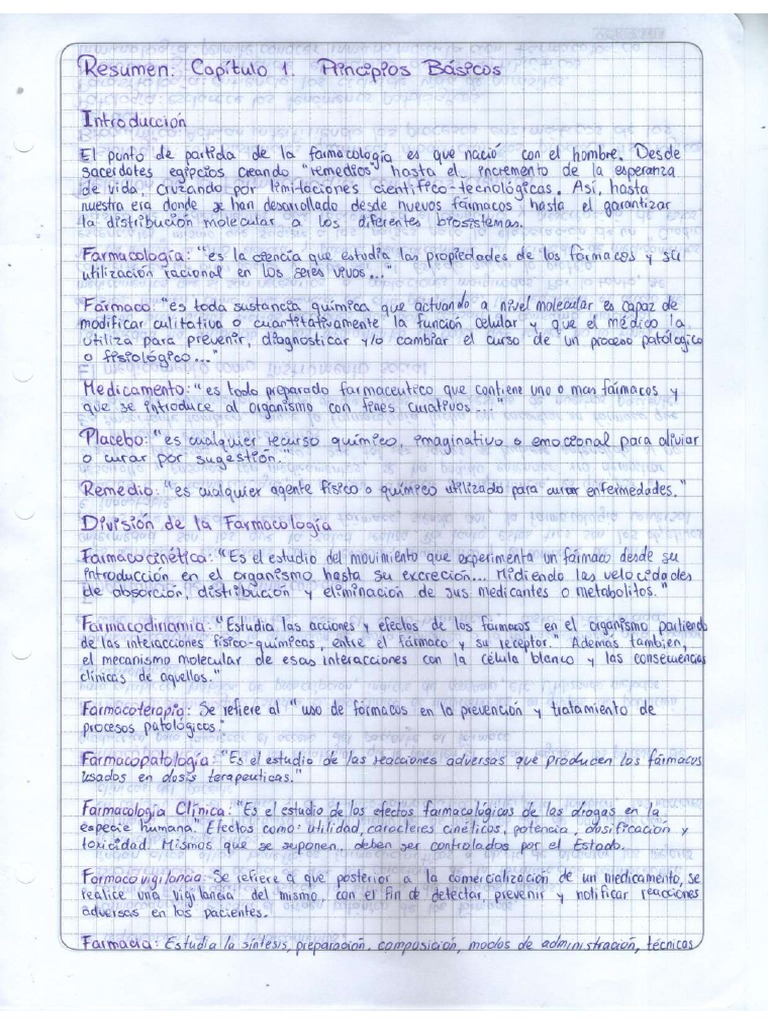 Resumen: Capítulo 1. Principios Básicos
Introducción
El punto de partida de la farmacología es que nació con el hombre. Desde
sacerdotes egipcios creando "remedios" hasta el incremento de la esperanza
de vida, cruzando por limitaciones científico-tecnológicas. Así, hasta
nuestra era donde se han desarrollado desde nuevos fármacos hasta el garantizar
la distribución molecular a los diferentes biosistemas.
Farmacología: "es la ciencia que estudia las propiedades de los fármacos y su
utilización racional en los seres vivos..."
Fármaco: "es toda sustancia química que actuando a nivel molecular es capaz de
modificar culitativa o cuantitativamente la función celular y que el médico la
utiliza para prevenir, diagnosticar y/o cambiar el curso de un proceso patológico
o fisiológico..."
Medicamento: "es todo preparado farmaceutico que contiene uno o mas fármacos y
que se introduce al organismo con fines curativos..."
Placebo: "es cualquier recurso químico, imaginativo o emocional para aliviar
o curar por sugestión."
Remedio: "es cualquier agente físico o químico utilizado para curar enfermedades."
División de la Farmacología
Farmacocinética: "Es el estudio del movimiento que experimenta un fármaco desde su
introducción en el organismo hasta su excreción... Midiendo las velocidades
de absorción, distribución y eliminación de sus medicantes o metabolitos."
Farmacodinamia: "Estudia las acciones y efectos de los fármacos en el organismo partiendo
de las interacciones físico-químicas, entre el fármaco y su receptor." Además tambien,
el mecanismo molecular de esas interacciones con la célula blanco y las consecuencias
clínicas de aquellos."
Farmacoterapia: Se refiere al "uso de fármacos en la prevención y tratamiento de
procesos patológicos."
Farmacopatología: "Es el estudio de las reacciones adversas que producen los fármacos
usados en dosis terapeuticas."
Farmacología Clínica: "Es el estudio de los efectos farmacológicos de las drogas en la
especie humana." Efectos como: utilidad, caracteres cinéticos, potencia, dosificación y
toxicidad. Mismos que se suponen, deben ser controlados por el Estado.
Farmacovigilancia: Se refiere a que posterior a la comercialización de un medicamento, se
realice una vigilancia del mismo, con el fin de detectar, prevenir y notificar reacciones
adversas en los pacientes.
Farmacia: Estudia la síntesis, preparación, composición, modos de administración, técnicas